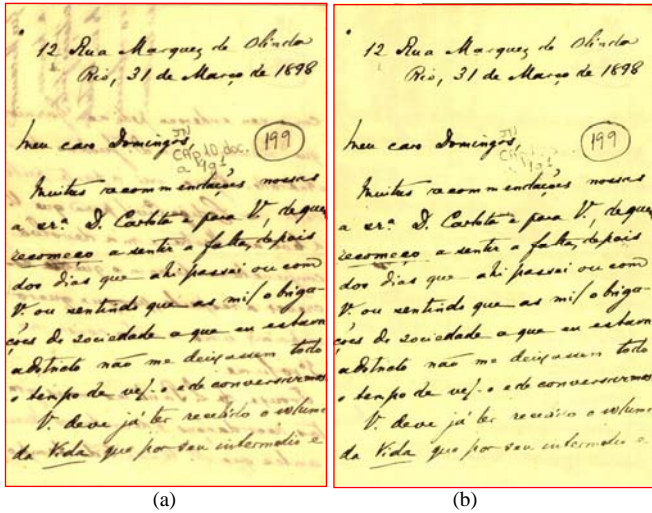 12 Rua Marquez de Olinda
Rio, 31 de Março de 1898
Meu caro Domingos,
199
CAP 10 doc.
Muitas recommendações nossas
a sr.ª D. Carlota e para V., de quem
recomeço a sentir a falta, depois
dos dias que ahi passei ou com
V. ou sentindo que as mil obriga-
ções de sociedade a que eu estava
adstricto não me deixassem todo
o tempo de vel-o e de conversarmos
V. deve já ter recebido o volume
da Vida que por seu intermedio e
(a)
12 Rua Marquez de Olinda
Rio, 31 de Março de 1898
Meu caro Domingos,
199
Muitas recommendações nossas
a sr.ª D. Carlota e para V., de quem
recomeço a sentir a falta, depois
dos dias que ahi passei ou com
V. ou sentindo que as mil obriga-
ções de sociedade a que eu estava
adstricto não me deixassem todo
o tempo de vel-o e de conversarmos
V. deve já ter recebido o volume
da Vida que por seu intermedio e
(b)